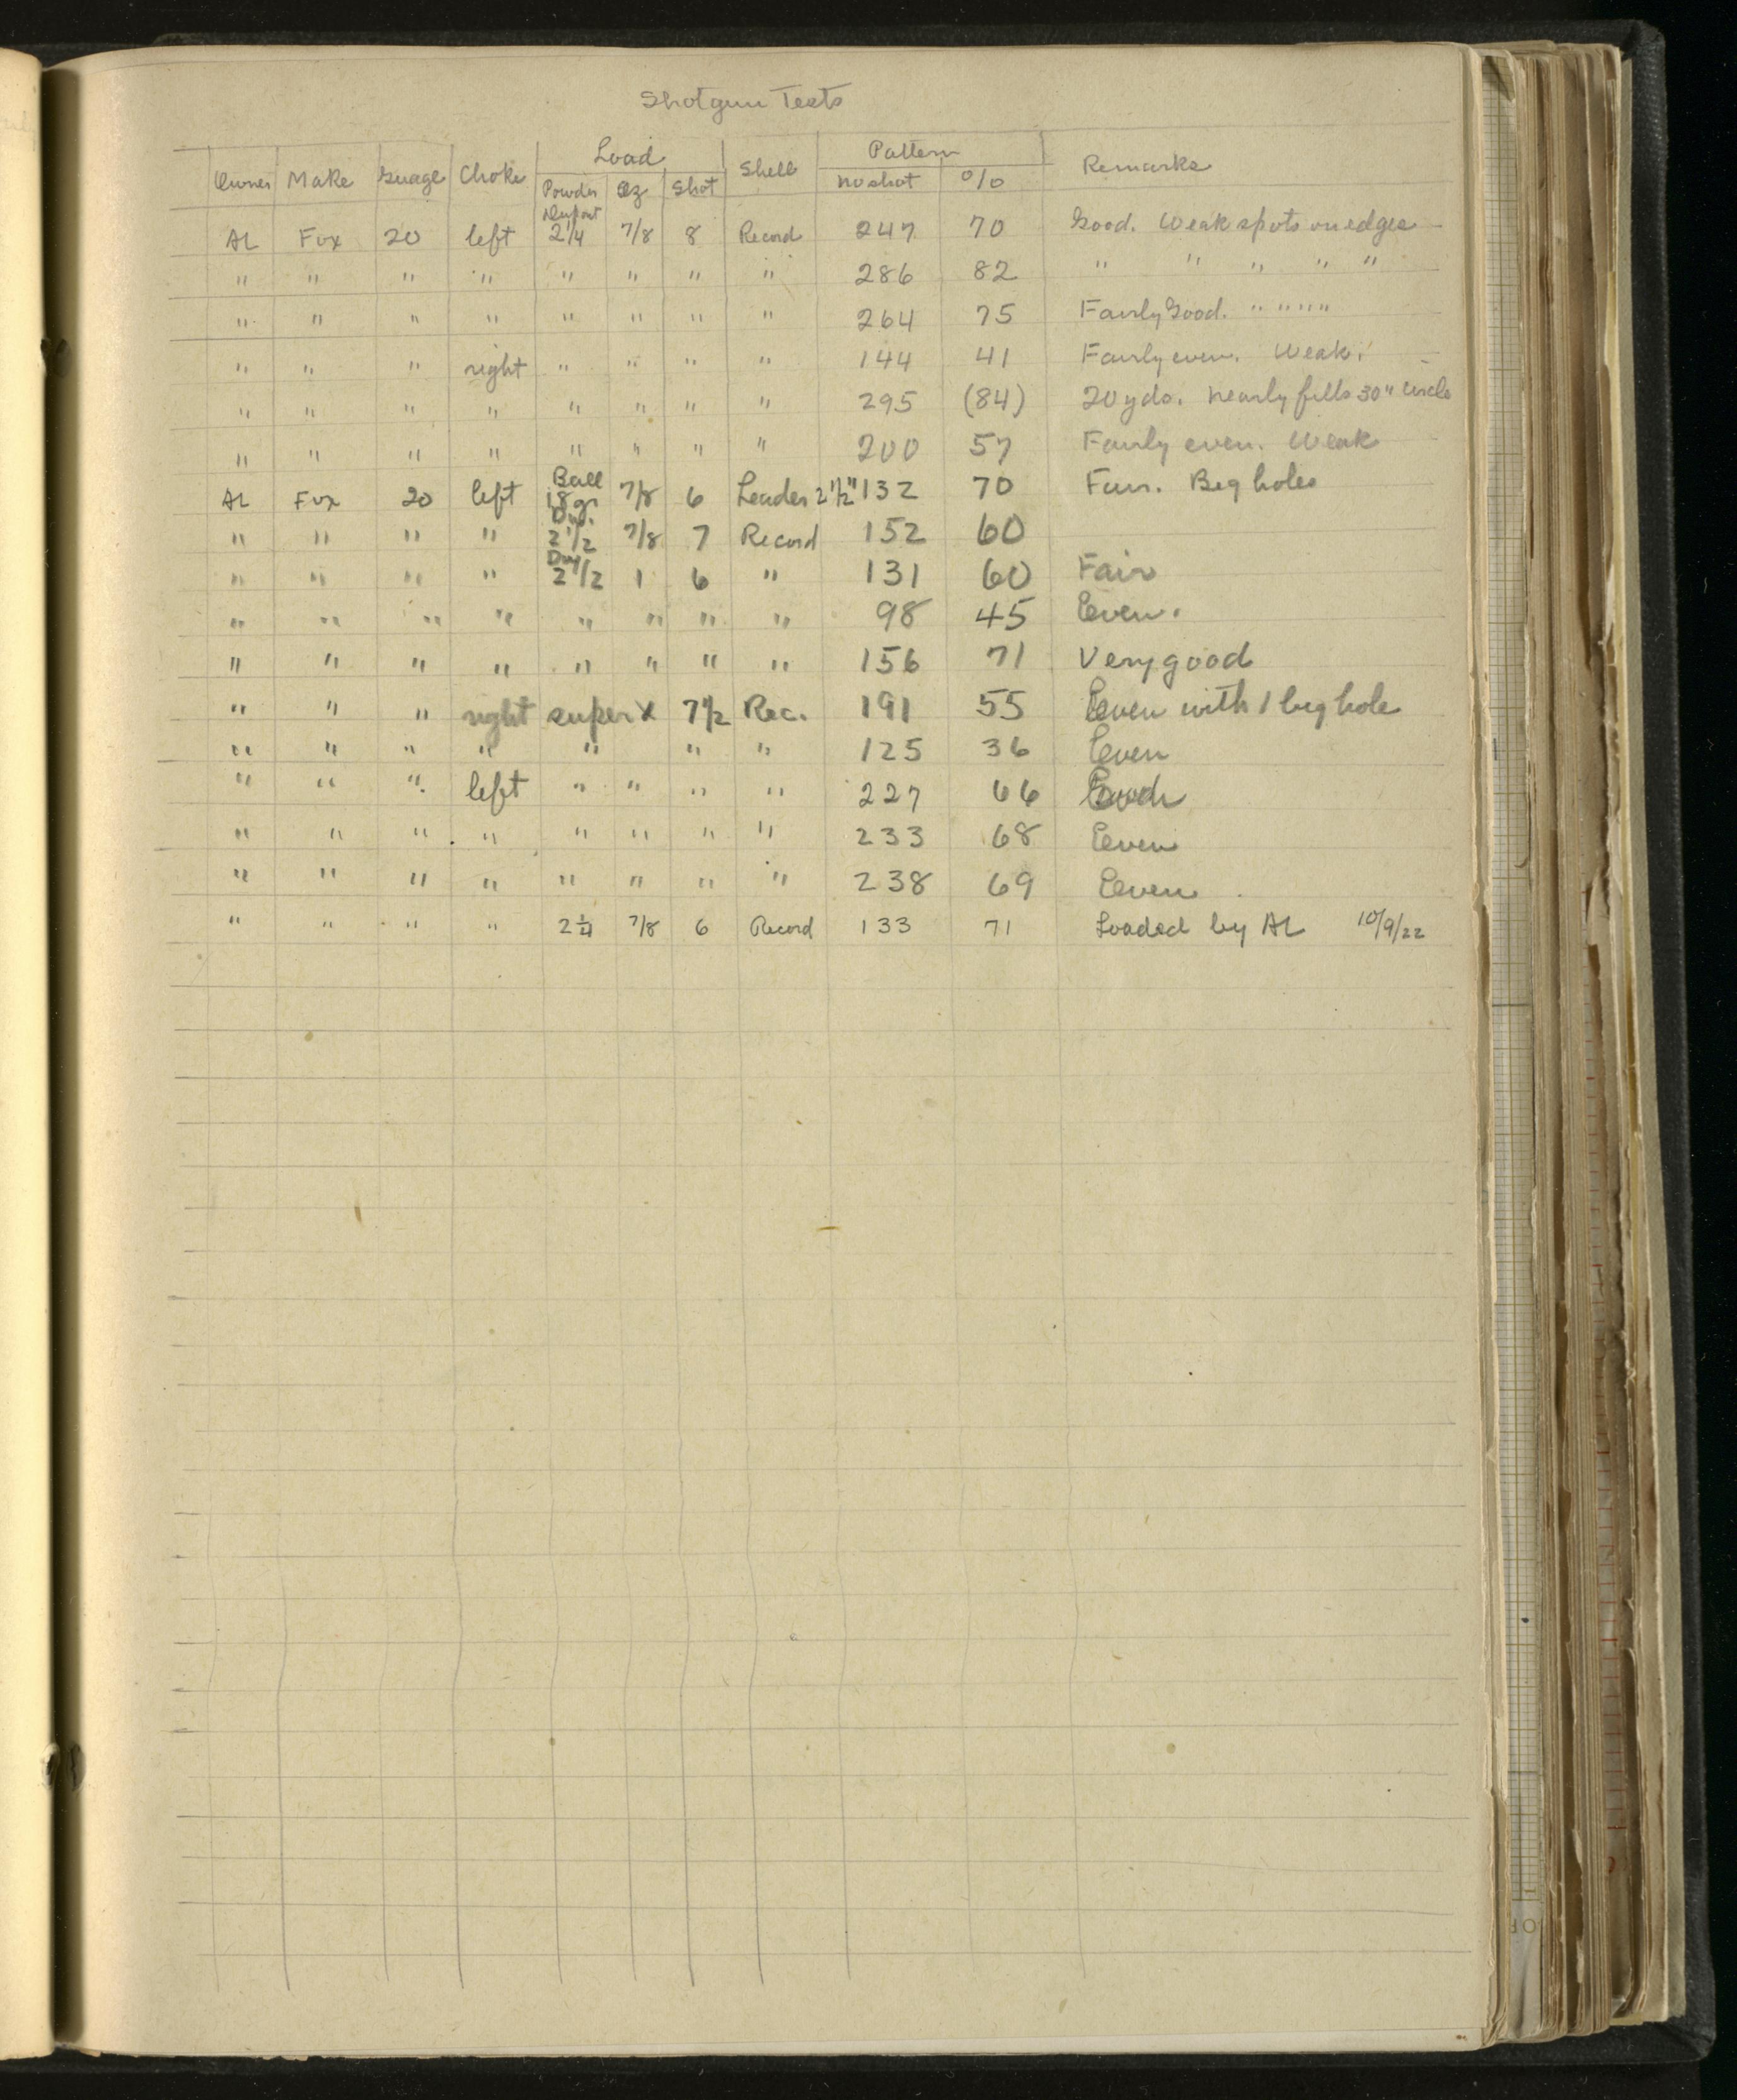 Shotgun Tests
Load Pattern
Owner Make Guage Choke Shell Remarks
Powder Oz Shot no shot %
Dupont
AL Fox 20 left 2 1/4 7/8 8 Record 247 70 Good. Weak spots on edges
" " " " " " " " 286 82 " " " " "
" " " " " " " " 264 75 Fairly Good. " " " "
" " " right " " " " 144 41 Fairly even. Weak.
" " " " " " " " 295 (84) 20 yds. nearly fills 30" circle
" " " " " " " " 200 57 Fairly even. Weak
Ball
AL Fox 20 left 18 gr 7/8 6 Leader 2 1/2" 132 70 Fair. Big holes
Du.
" " " " 2 1/2 7/8 7 Record 152 60
Du
" " " " 2 1/2 1 6 " 131 60 Fair
" " " " " " " " 98 45 Even.
" " " " " " " " 156 71 Very good
" " " right super X 7 1/2 Rec. 191 55 Even with 1 big hole
" " " " " " " 125 36 Even
" " " left " " " " 227 66
" " " " " " " " 233 68 Even
" " " " " " " " 238 69 Even
" " " " 2 1/4 7/8 6 Record 133 71 Loaded by AL 10/9/22